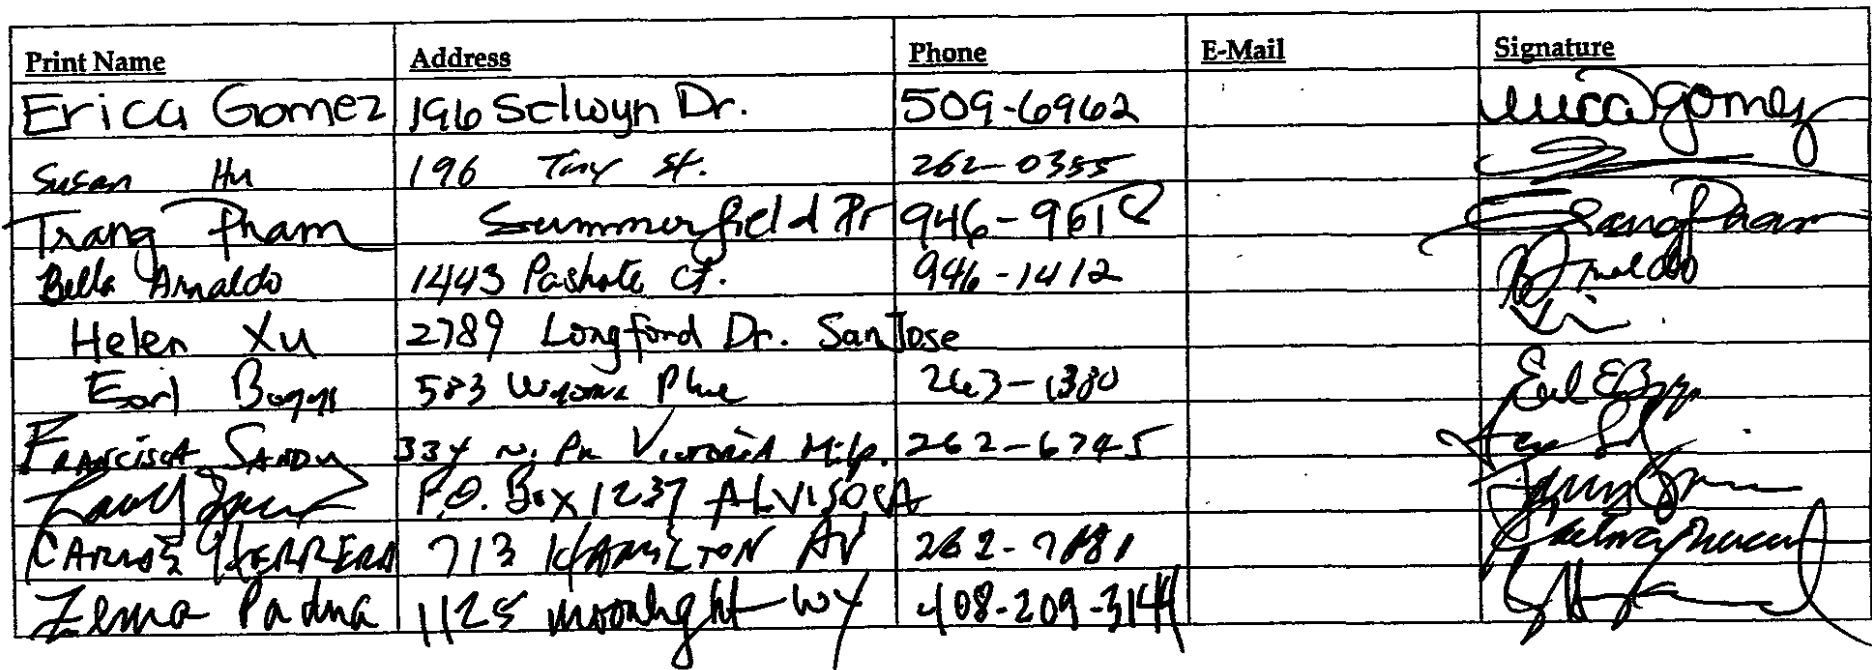 Print Name Address Phone E-Mail Signature
Erica Gomez 196 Selwyn Dr. 509-6962 Erica Gomez
Susan Hu 196 Tiny St. 262-0355
Trang Pham Summerfield Dr 946-9612 Trang Pham
Bella Arnaldo 1443 Pashote Ct. 946-1412 B Arnaldo
Helen Xu 2789 Longford Dr. San Jose
Earl Boggs 583 Place 263-1380 Earl E Boggs
Francisca Sandu 334 N. Victoria Milp. 262-6745
P.O. Box 1237 ALVISO CA
CARLOS HERRERA 713 HAMILTON AV 262-7881
Zema Padua 1125 Moonlight WY 408-209-3144